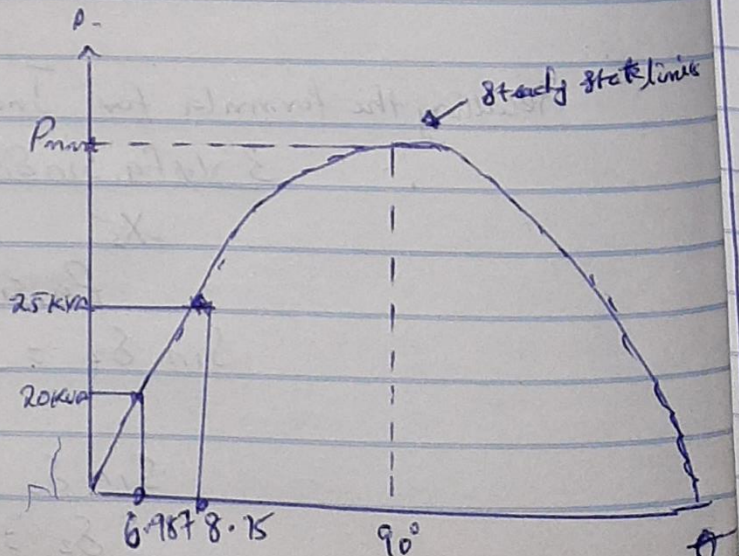 P-
steady state limit
Pmax
25KVA
20KVA
6.987 8.75
90°